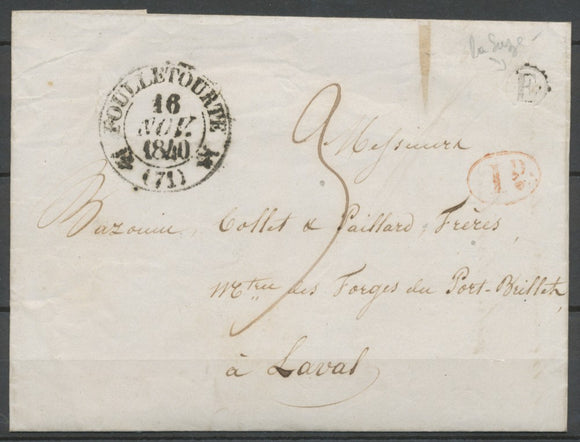 La Suze
E
FOULLETOURTE
16
NOV.
1840
(71)
3
Messieurs
1 D.
Bazouin, Collet & Paillard, Frères,
Mtres des Forges du Port-Brillet,
à Laval